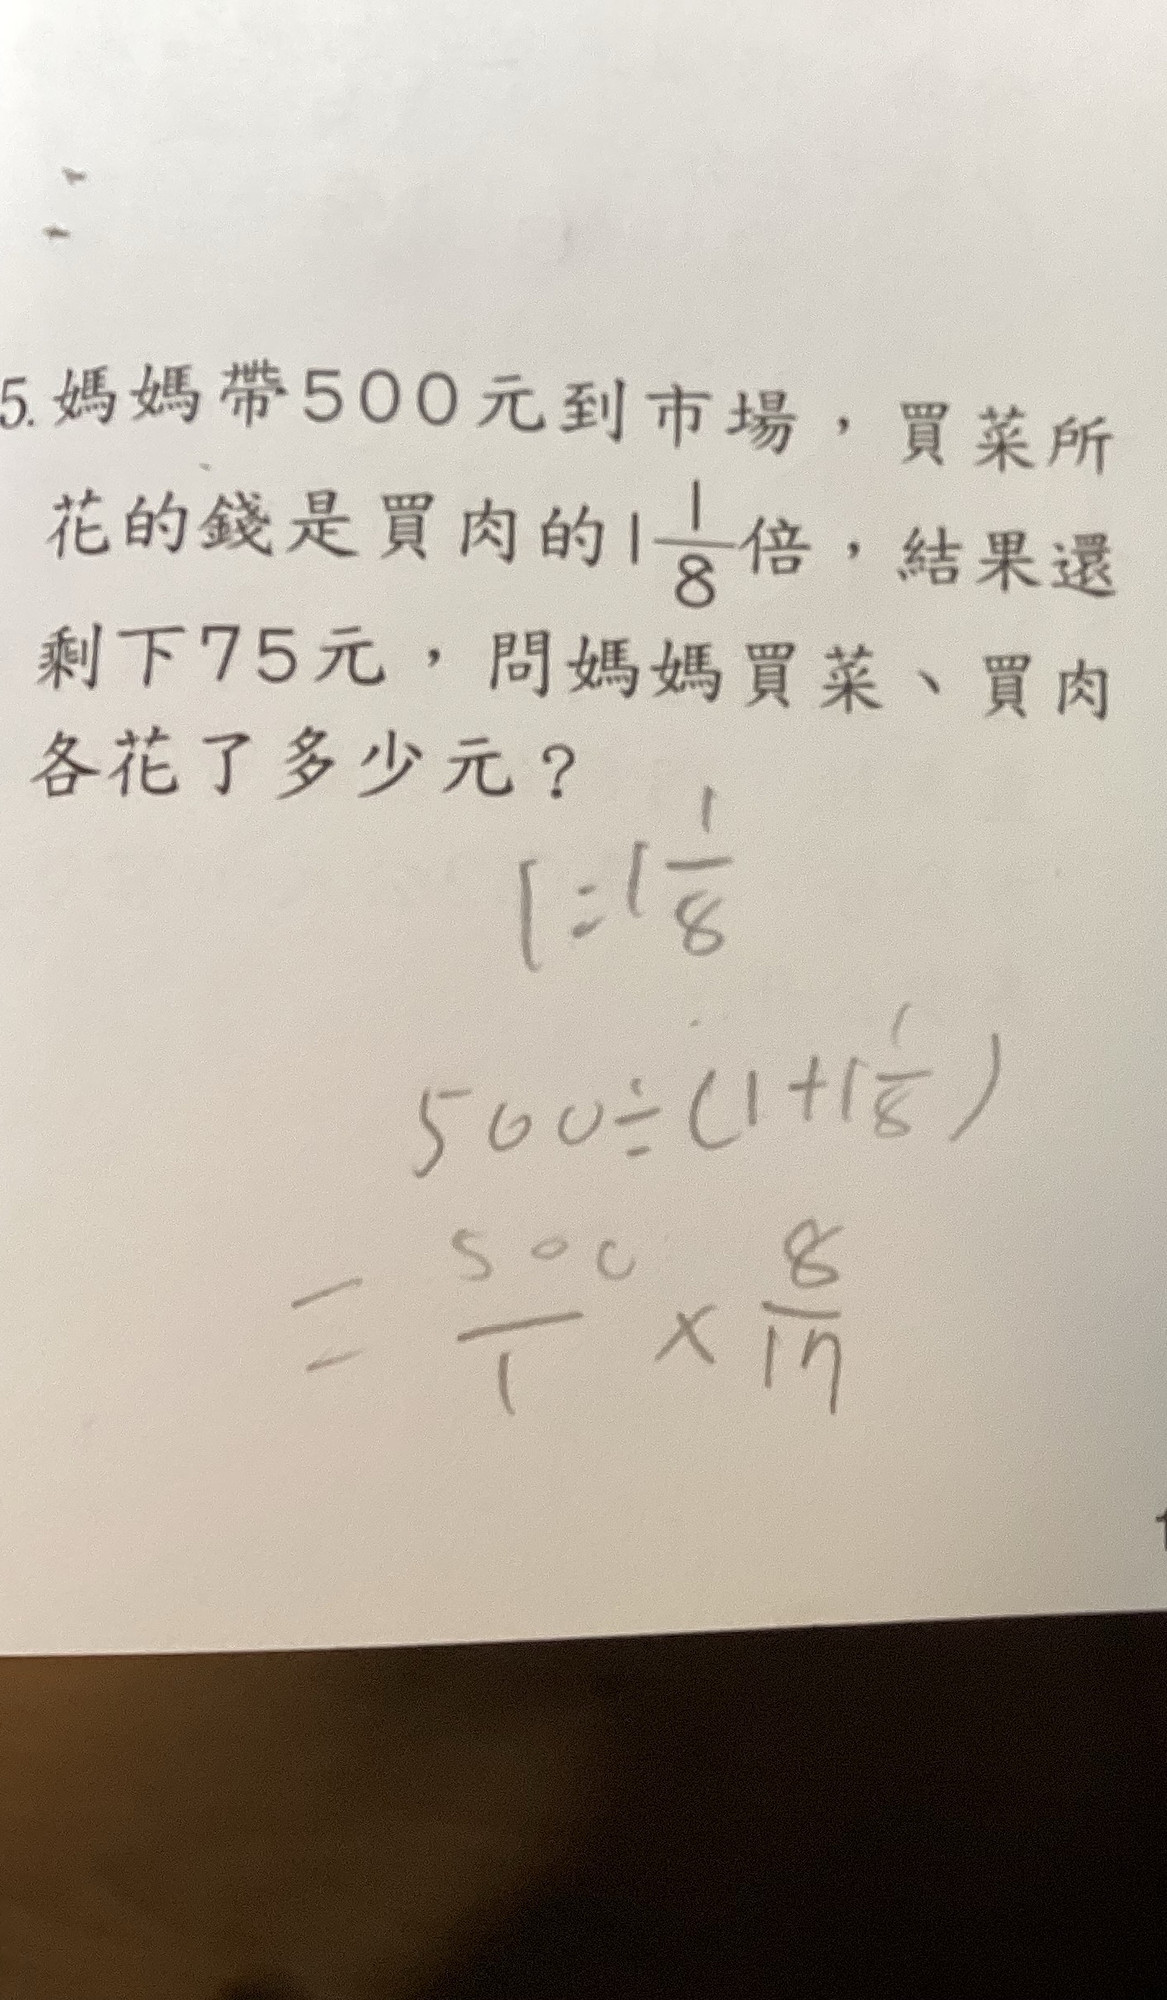 5. 媽媽帶500元到市場，買菜所
花的錢是買肉的1 1/8倍，結果還
剩下75元，問媽媽買菜、買肉
各花了多少元？
1:1 1/8
500÷(1+1 1/8)
= 500/1 × 8/17